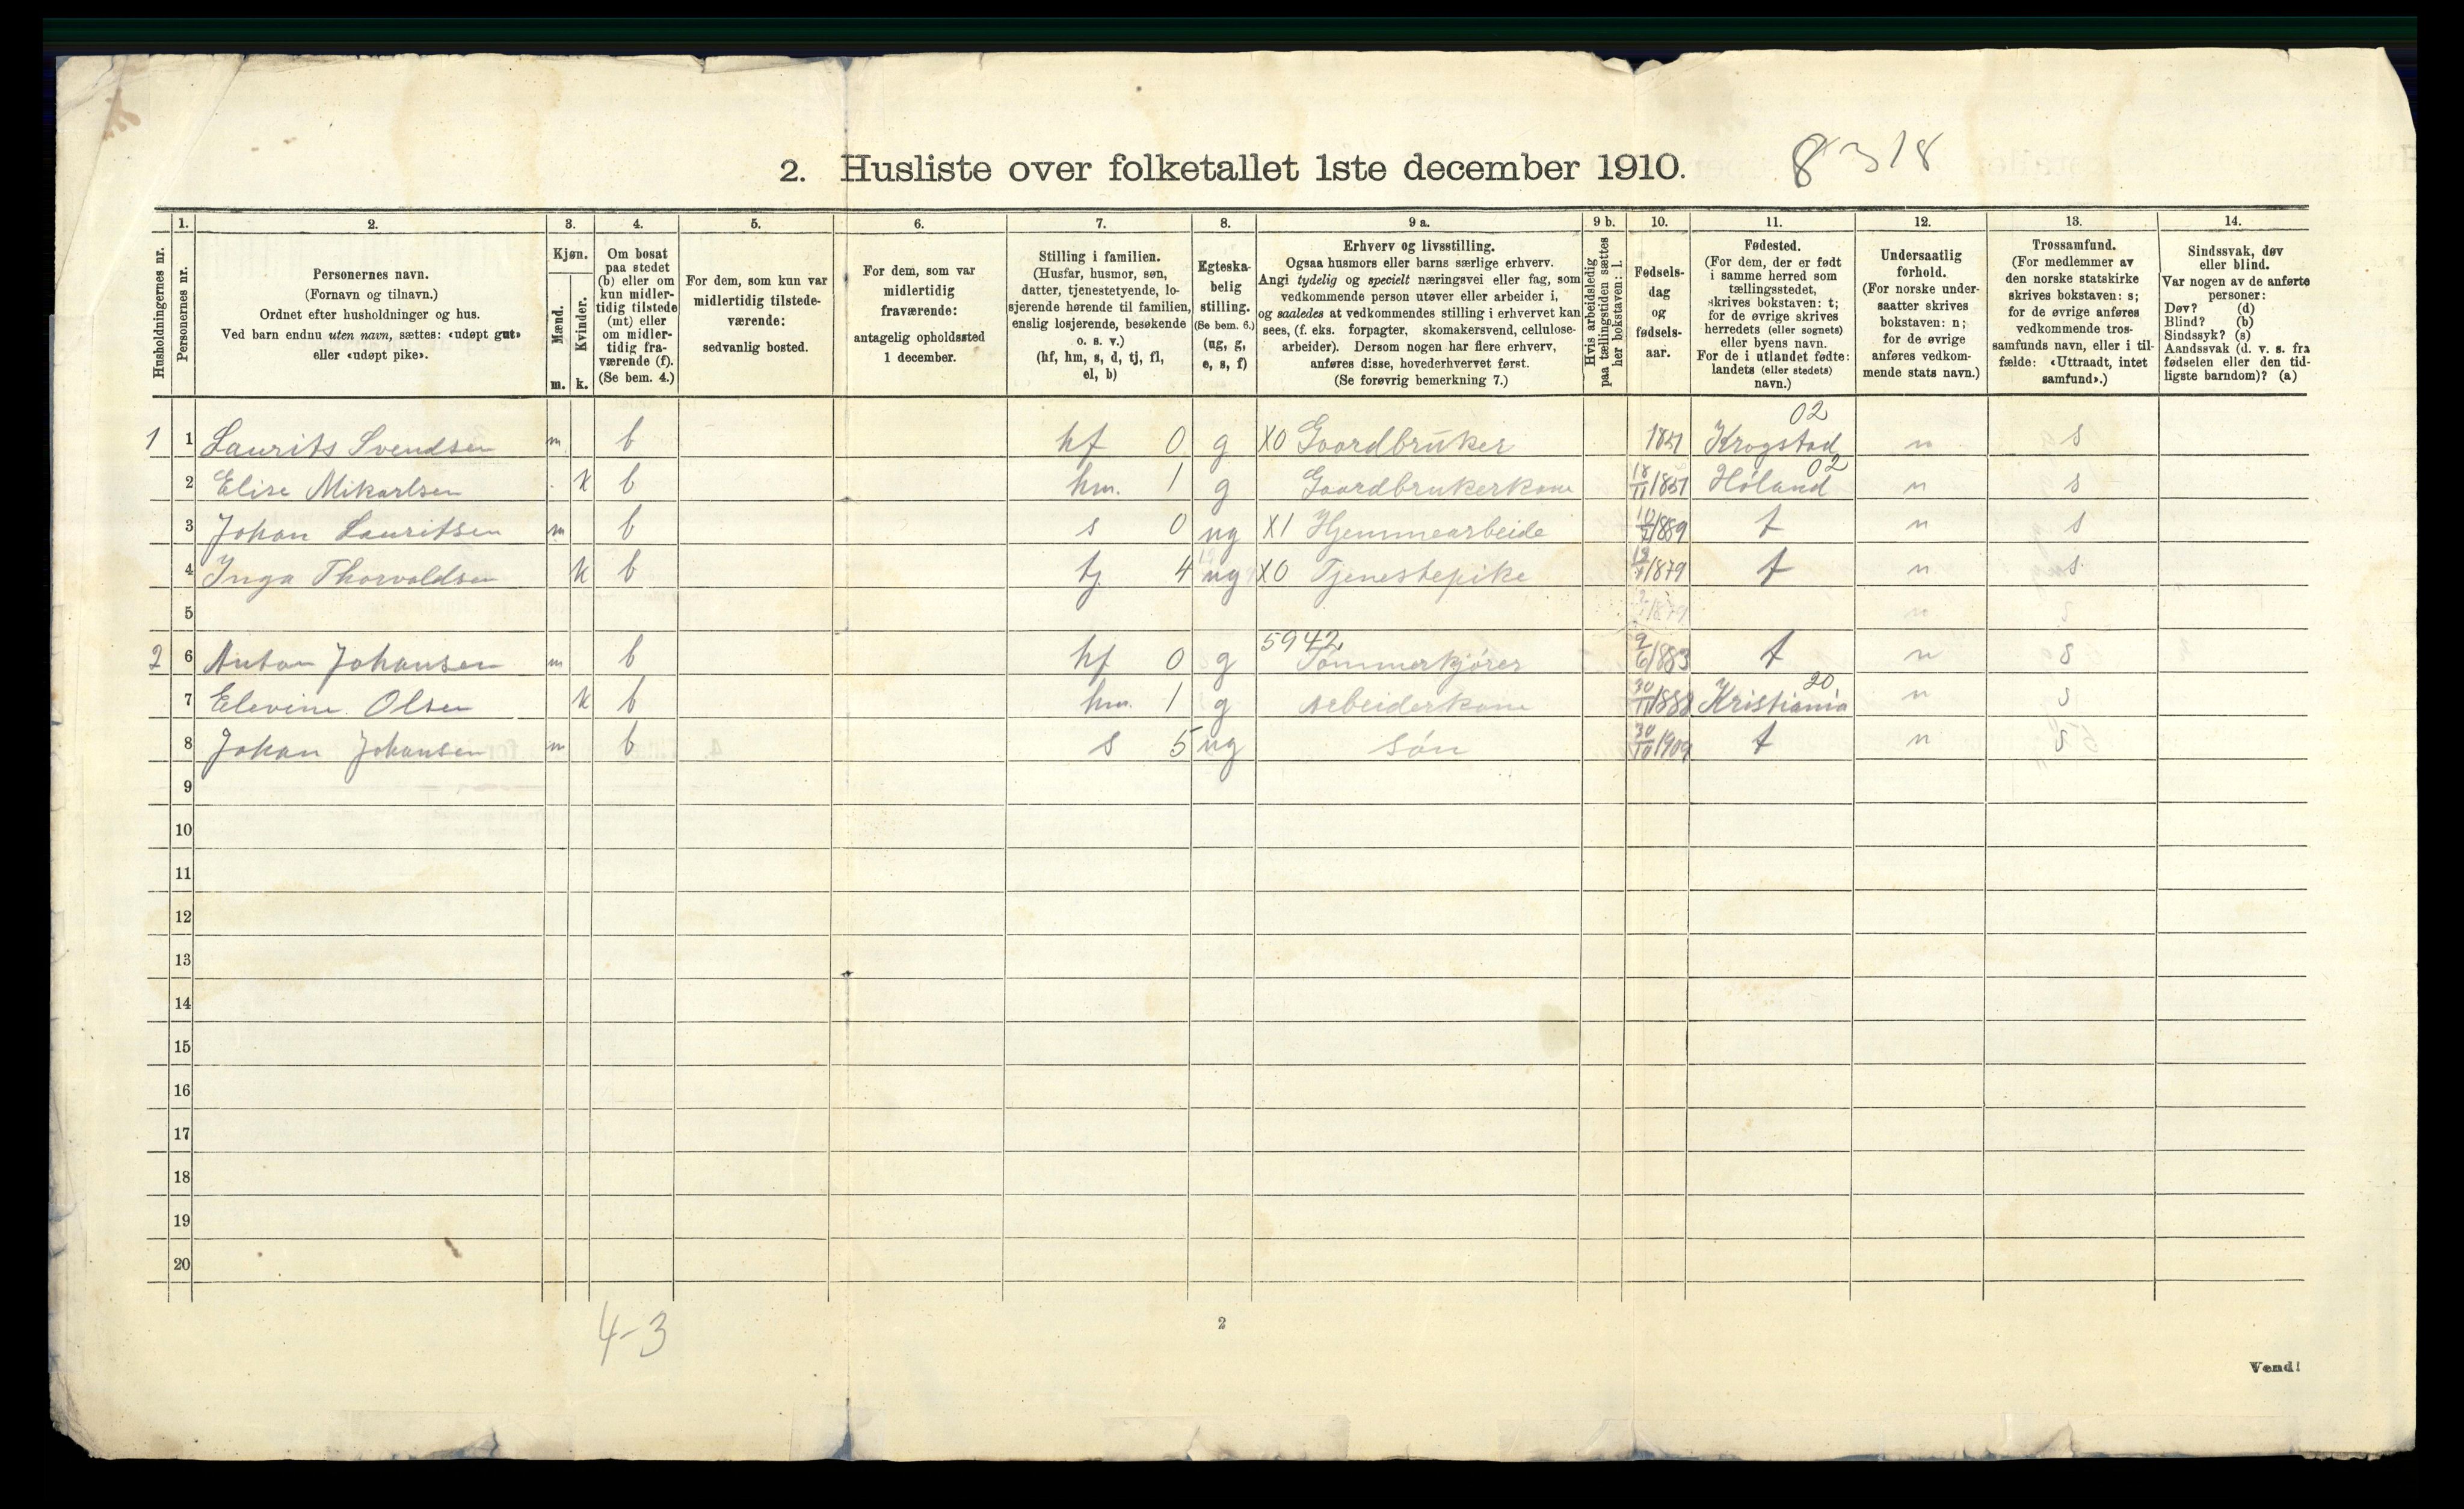 2. Husliste over folketallet 1ste december 1910. 8318
Husholdningernes nr.
1. Personernes nr.
2. Personernes navn.
(Fornavn og tilnavn.)
Ordnet efter husholdninger og hus.
Ved barn endnu uten navn, sættes: «udøpt gut»
eller «udøpt pike».
3. Kjøn.
Mænd. m.
Kvinder. k.
4. Om bosat
paa stedet
(b) eller om
kun midler-
tidig tilstede
(mt) eller
om midler-
tidig fra-
værende (f).
(Se bem. 4.)
5. For dem, som kun var
midlertidig tilstede-
værende:
sedvanlig bosted.
6. For dem, som var
midlertidig
fraværende:
antagelig opholdssted
1 december.
7. Stilling i familien.
(Husfar, husmor, søn,
datter, tjenestetyende, lo-
sjerende hørende til familien,
enslig losjerende, besøkende
o. s. v.)
(hf, hm, s, d, tj, fl,
el, b)
8. Egteska-
belig
stilling.
(Se bem. 6.)
(ug, g,
e, s, f)
9 a. Erhverv og livsstilling.
Ogsaa husmors eller barns særlige erhverv.
Angi tydelig og specielt næringsvei eller fag, som
vedkommende person utøver eller arbeider i,
og saaledes at vedkommendes stilling i erhvervet kan
sees, (f. eks. forpagter, skomakersvend, cellulose-
arbeider). Dersom nogen har flere erhverv,
anføres disse, hovederhvervet først.
(Se forøvrig bemerkning 7.)
9 b. Hvis arbeidsledig
paa tællingstiden sættes
her bokstaven: l.
10. Fødsels-
dag
og
fødsels-
aar.
11. Fødested.
(For dem, der er født
i samme herred som
tællingsstedet,
skrives bokstaven: t;
for de øvrige skrives
herredets (eller sognets)
eller byens navn.
For de i utlandet fødte:
landets (eller stedets)
navn.)
12. Undersaatlig
forhold.
(For norske under-
saatter skrives
bokstaven: n;
for de øvrige
anføres vedkom-
mende stats navn.)
13. Trossamfund.
(For medlemmer av
den norske statskirke
skrives bokstaven: s;
for de øvrige anføres
vedkommende tros-
samfunds navn, eller i til-
fælde: «Uttraadt, intet
samfund».)
14. Sindssvak, døv
eller blind.
Var nogen av de anførte
personer:
Døv? (d)
Blind? (b)
Sindssyk? (s)
Aandssvak (d. v. s. fra
fødselen eller den tid-
ligste barndom)? (a)
02
1 1 Laurits Svendsen m b hf 0 g X0 Gaardbruker 1851 Krogstad n s
02
2 Elise Mikarlsen k b hm. 1 g Gaardbrukerkone 18/11 1851 Høland n s
3 Johan Lauritsen m b s 0 ug X1 Hjemmearbeide 1889 t n s
4 Inga Thorvaldsen k b tj 4 ug X0 Tjenestepike 1879 t n s
5
5942
2 6 Anton Johansen m b hf 0 g Tømmerkjører 9/6 1883 t n s
20
7 Elevine Olsen k b hm. 1 g Arbeiderkone 30/11 1888 Kristiania n s
8 Johan Johansen m b s 5 ug søn 30/10 1909 t n s
9
10
11
12
13
14
15
16
17
18
19
20
4-3
2
Vend!